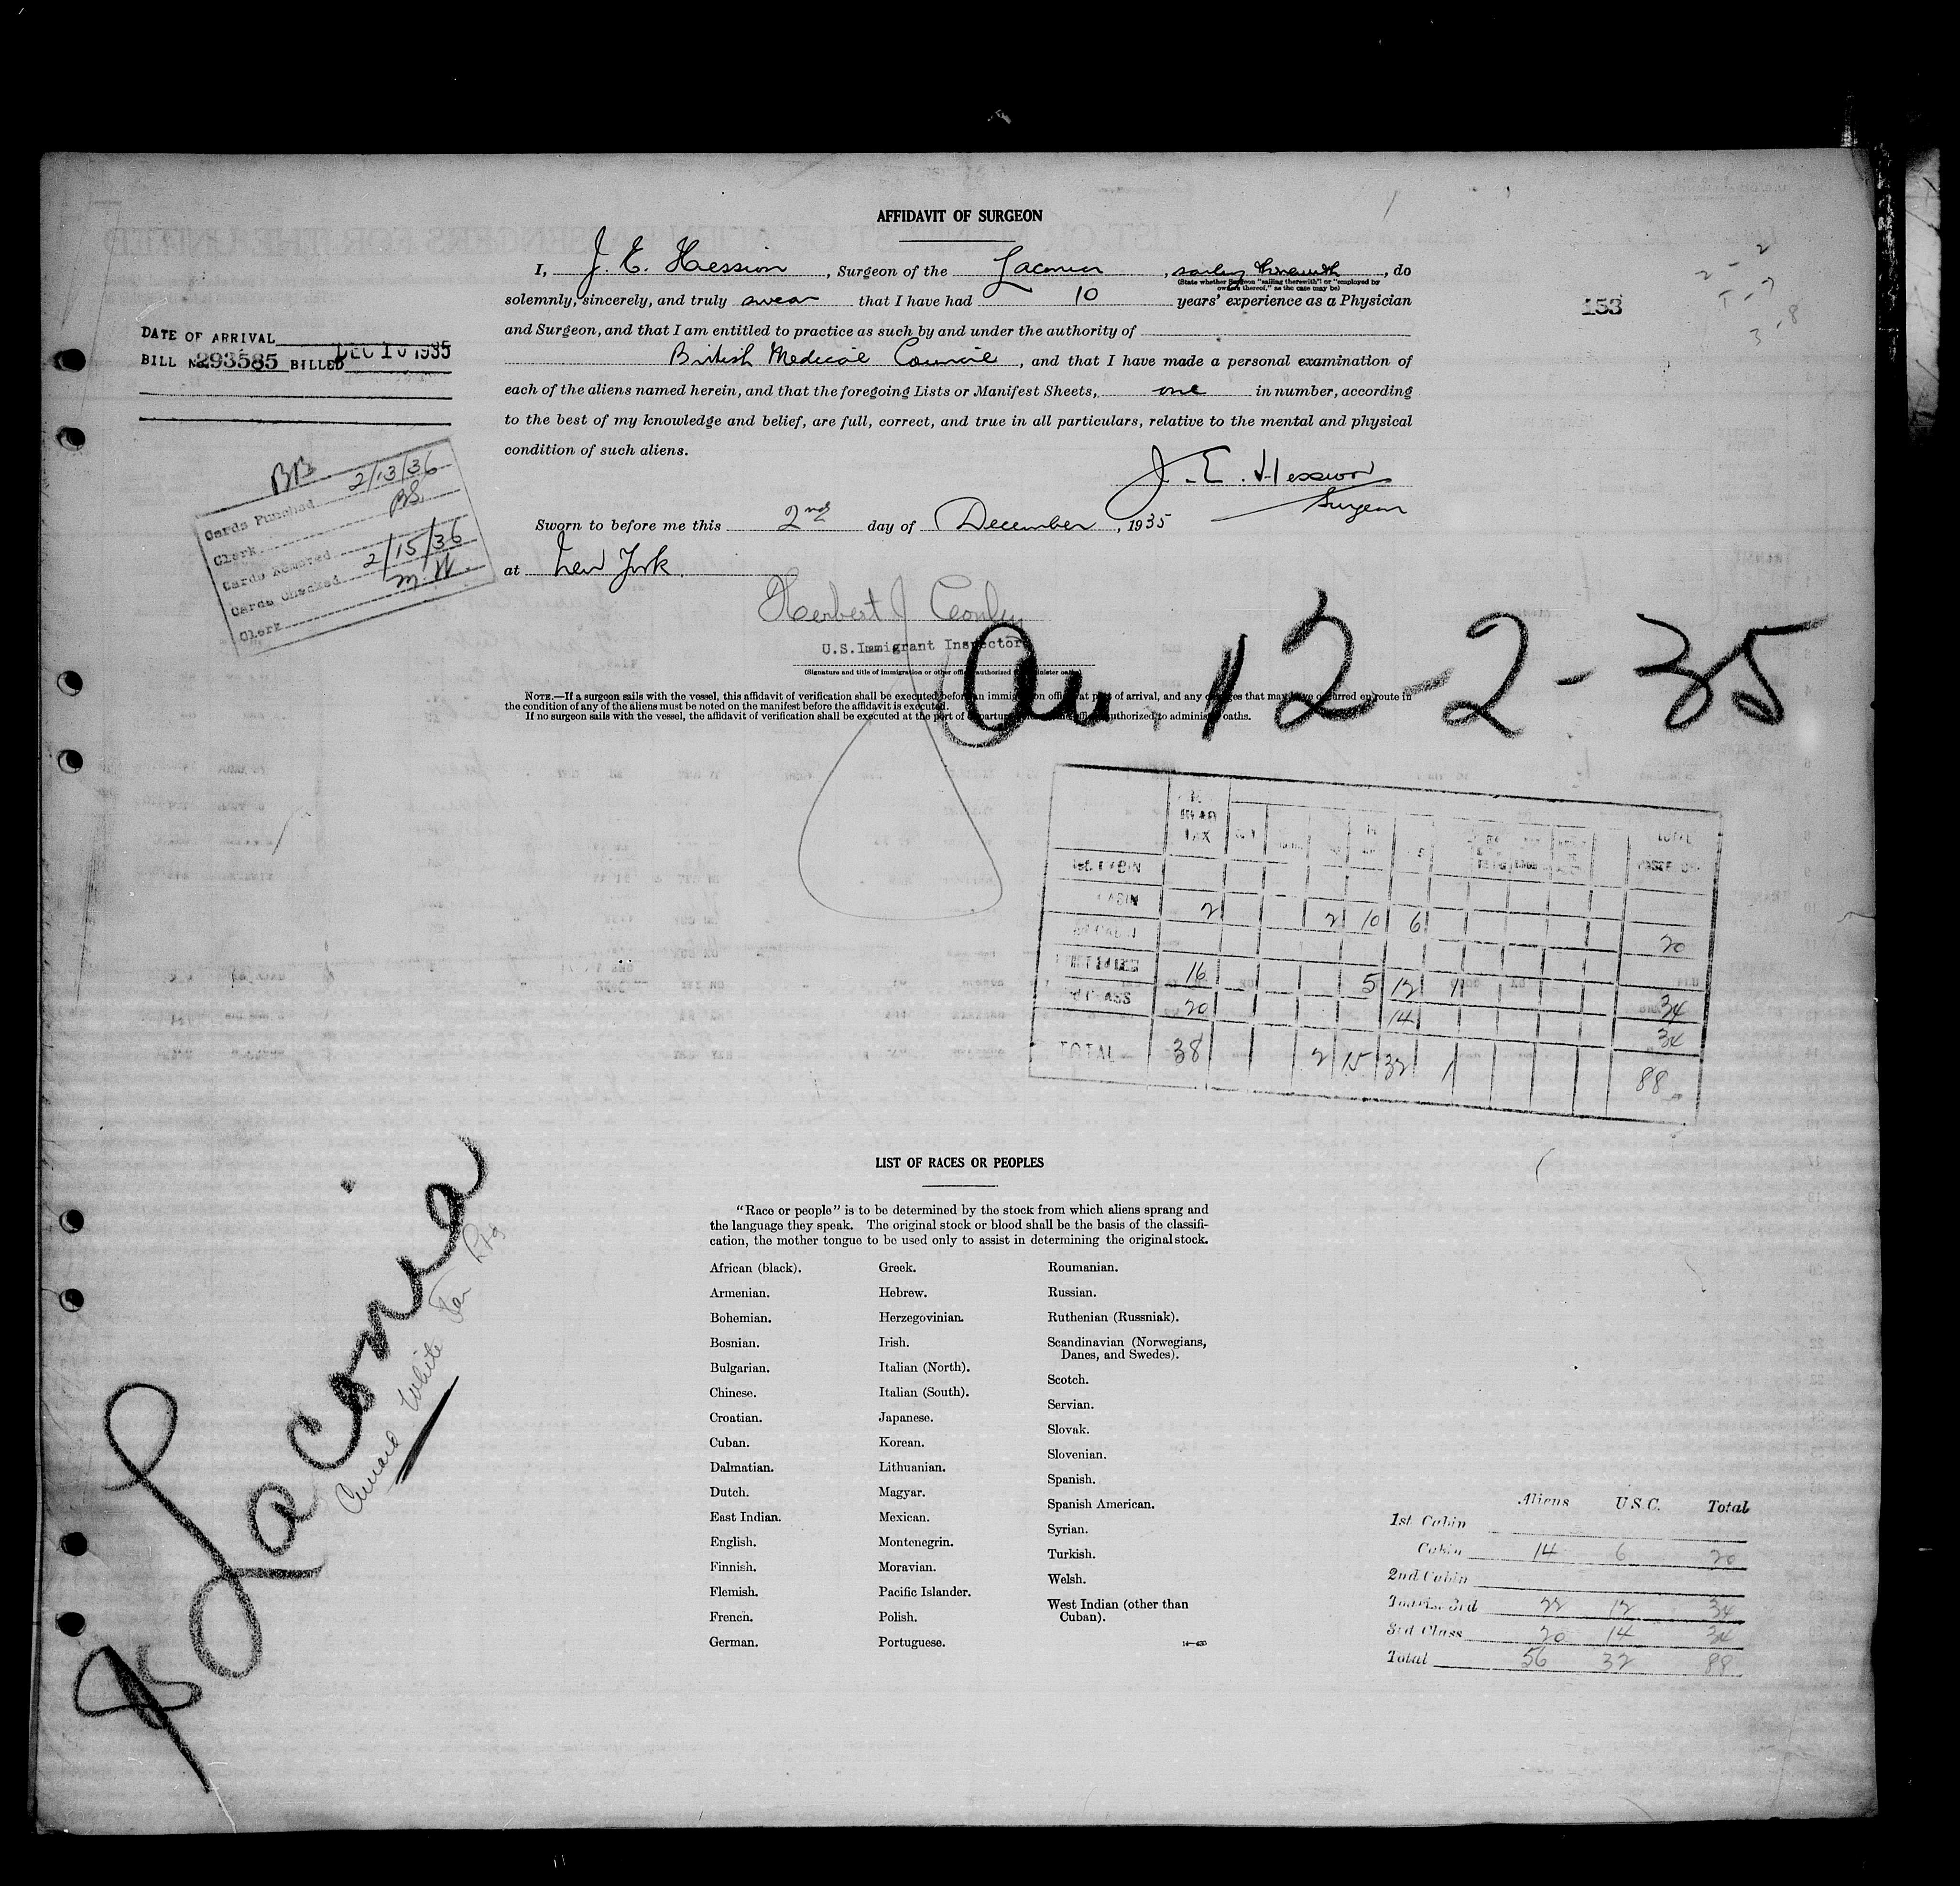 AFFIDAVIT OF SURGEON
I, J. E. Hession, Surgeon of the Laconia, sailing therewith, do
(State whether Surgeon "sailing therewith" or "employed by
owners thereof," as the case may be)
solemnly, sincerely, and truly swear that I have had 10 years' experience as a Physician
and Surgeon, and that I am entitled to practice as such by and under the authority of
British Medical Council, and that I have made a personal examination of
each of the aliens named herein, and that the foregoing Lists or Manifest Sheets, one in number, according
to the best of my knowledge and belief, are full, correct, and true in all particulars, relative to the mental and physical
condition of such aliens.
J. E. Hession
Surgeon
Sworn to before me this 2nd day of December, 1935
at New York.
Herbert J
U.S. Immigrant Inspector
(Signature and title of immigration or other officer authorized to administer oaths)
NOTE.—If a surgeon sails with the vessel, this affidavit of verification shall be executed before an immigration officer at port of arrival, and any changes that may have occurred en route in
the condition of any of the aliens must be noted on the manifest before the affidavit is executed.
If no surgeon sails with the vessel, the affidavit of verification shall be executed at the port of departure before officer authorized to administer oaths.
153
2 - 2
T - 7
3 - 8
DATE OF ARRIVAL
BILL No. 293585 BILLED DEC 10 1935
BB
Cards Punched 2/13/36
Clerk BS
Cards Removed
Cards Checked 2/15/36
Clerk M.W.
12-2-35
HEAD TAX TOTAL
1st CABIN
CABIN 2 2 10 6 20
2nd CABIN
TOURIST 3d CLASS 16 5 12 1 34
3d CLASS 20 14 34
TOTAL 38 2 15 32 1 88
LIST OF RACES OR PEOPLES
"Race or people" is to be determined by the stock from which aliens sprang and
the language they speak. The original stock or blood shall be the basis of the classifi-
cation, the mother tongue to be used only to assist in determining the original stock.
African (black).
Armenian.
Bohemian.
Bosnian.
Bulgarian.
Chinese.
Croatian.
Cuban.
Dalmatian.
Dutch.
East Indian.
English.
Finnish.
Flemish.
French.
German.
Greek.
Hebrew.
Herzegovinian.
Irish.
Italian (North).
Italian (South).
Japanese.
Korean.
Lithuanian.
Magyar.
Mexican.
Montenegrin.
Moravian.
Pacific Islander.
Polish.
Portuguese.
Roumanian.
Russian.
Ruthenian (Russniak).
Scandinavian (Norwegians,
Danes, and Swedes).
Scotch.
Servian.
Slovak.
Slovenian.
Spanish.
Spanish American.
Syrian.
Turkish.
Welsh.
West Indian (other than
Cuban).
14—430
Laconia
Cunard White Star Ltd
Aliens U.S.C. Total
1st Cabin
Cabin 14 6 20
2nd Cabin
Tourist 3rd 22 12 34
3rd Class 20 14 34
Total 56 32 88